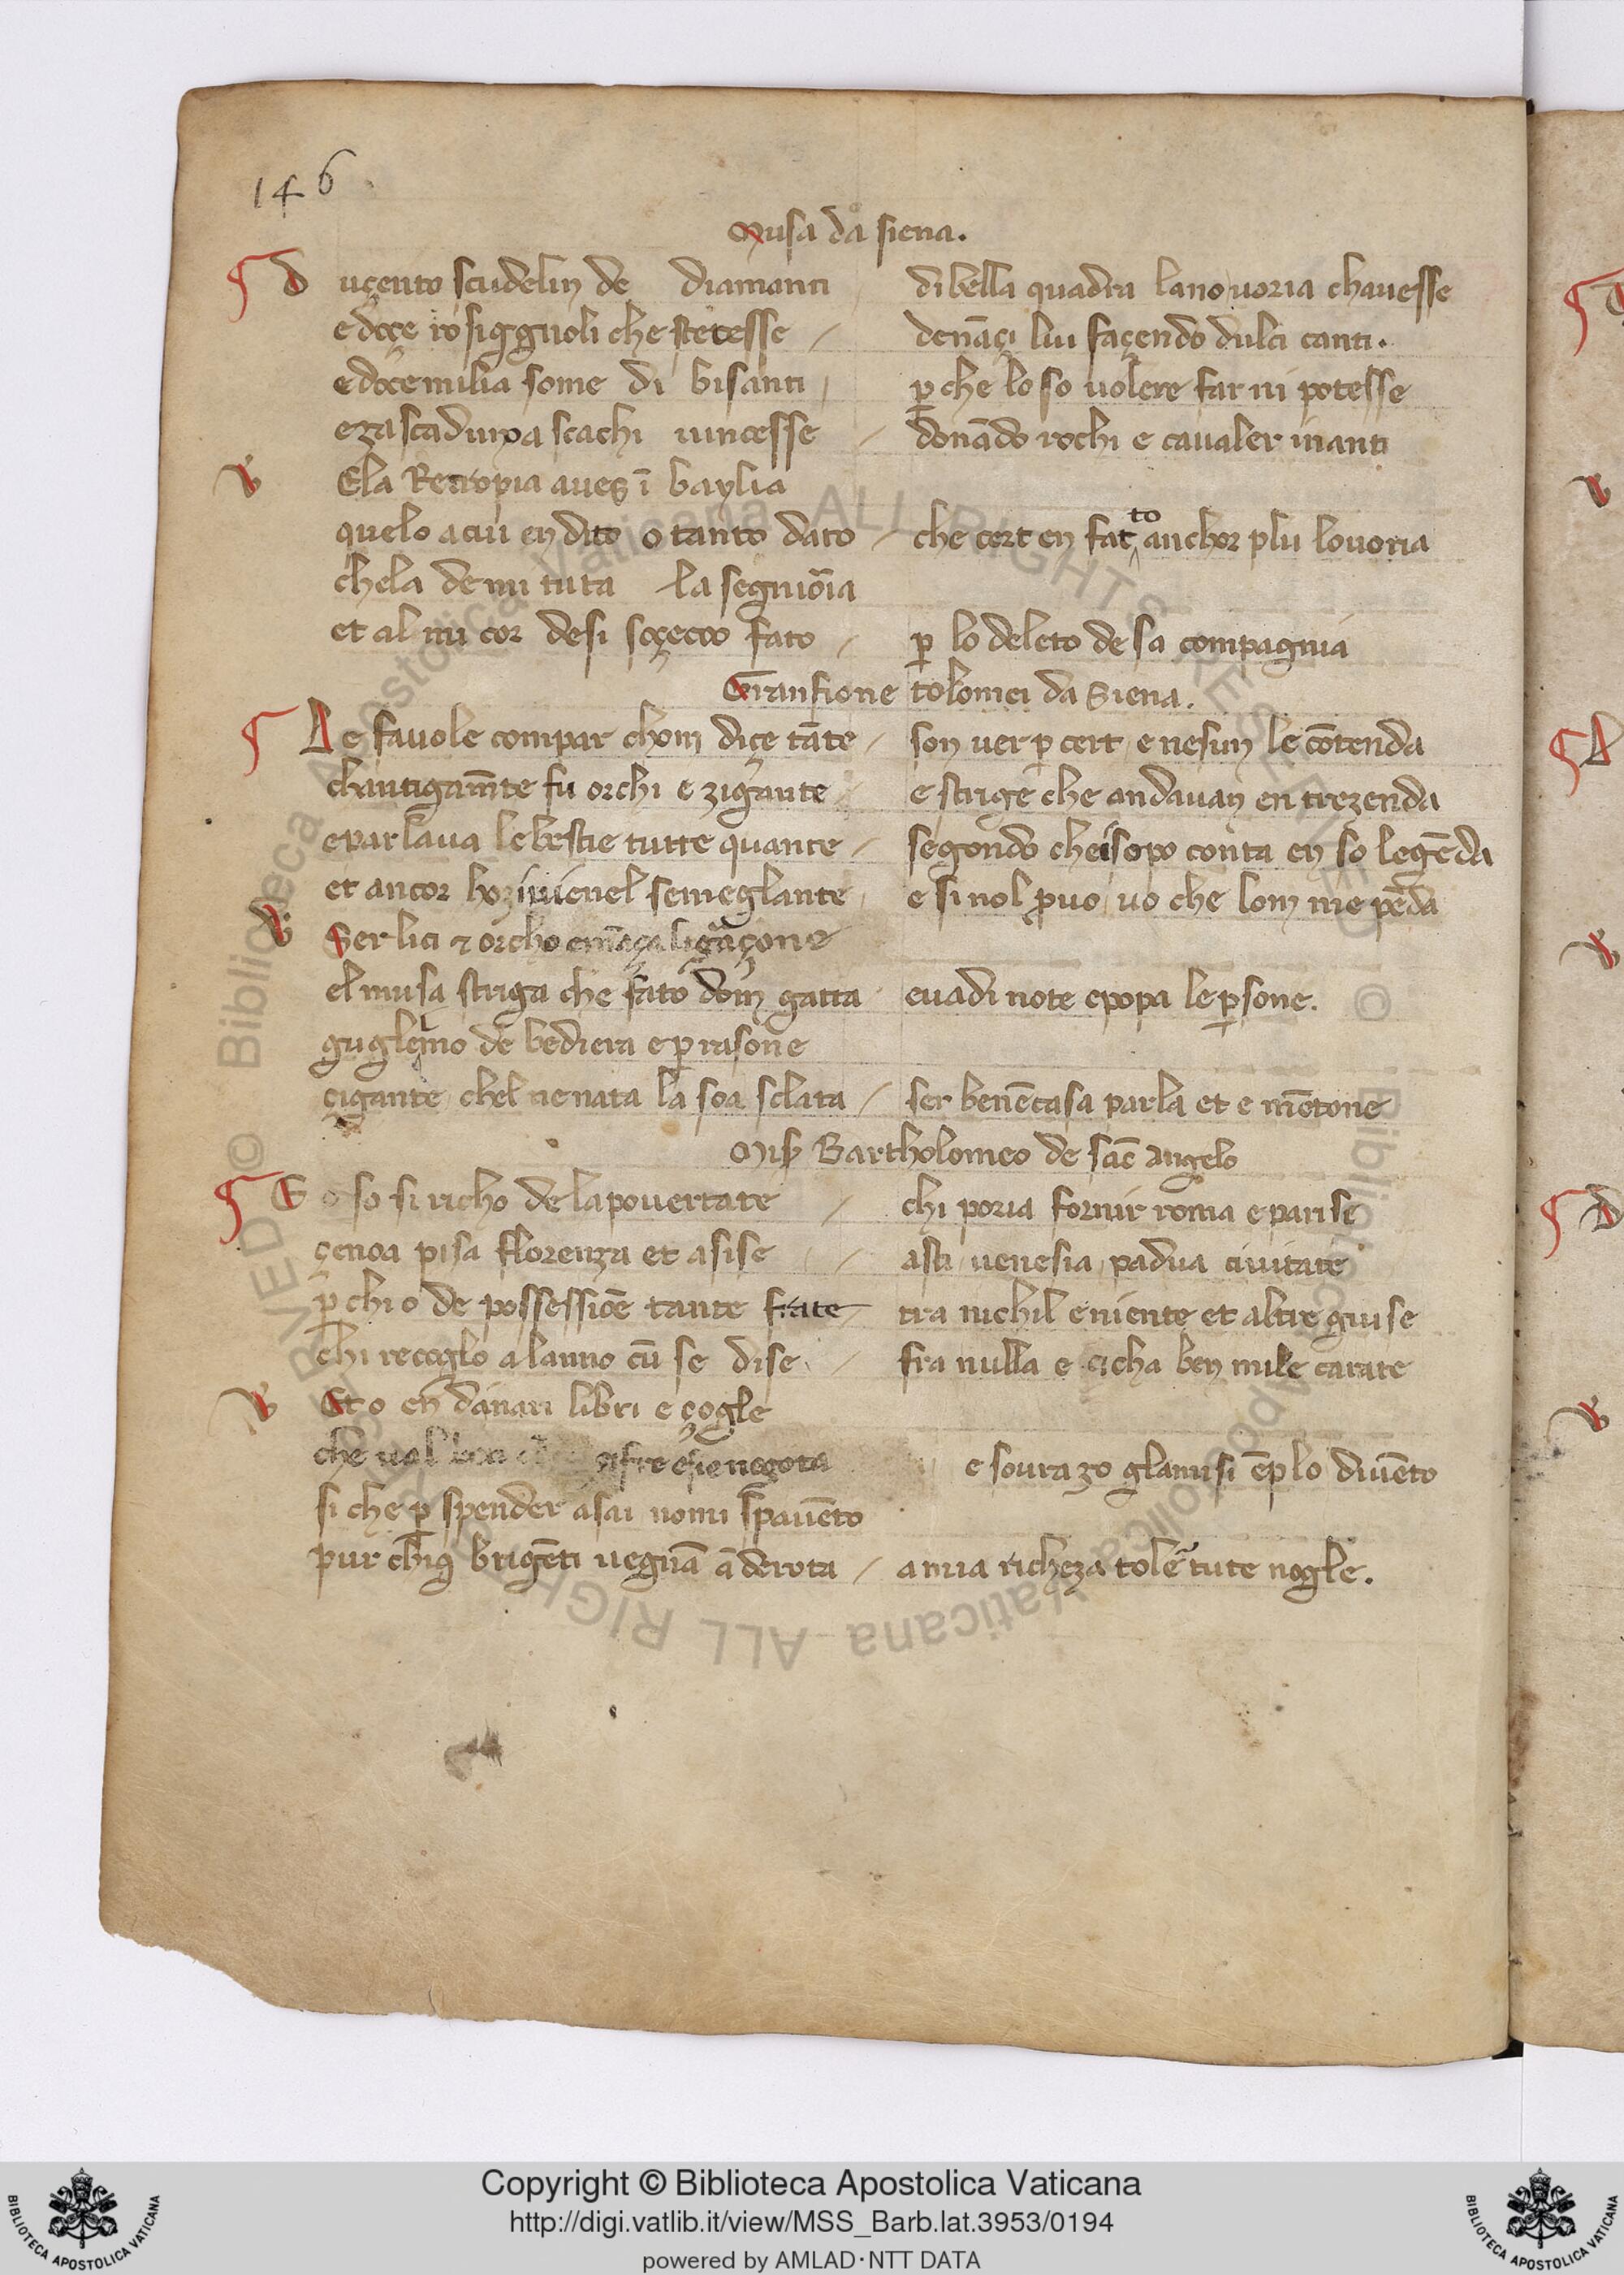 146
Musa da siena.
Duçento scudelin de diamanti / di bella quadra lano uoria chauesse
e doçe rosigguoli che stetesse / denāçi lui façendo dulci canti.
e doçe milia some di bisanti / p che lo so uolere far ni potesse
e za scadunpa scachi uincesse / donādo rochi e caualer inanti
Ela Retropia aues ī baylia
quelo a cui en dito o tanto dato / che cert en fatto anchor plu louoria
chela de mi tuta la segniōia
et al mi cor desi fato / p lo deleto de sa compagnia
Granfione tolomei da Siena.
Le fauole compar chom diçe tāte / son uer p cert e nesun le cōtenda
chantigamēte fu orchi e zigante / e strige che andauan en trezenda
e parlaua le bestie tutte quante / segondo che isopo conta en so legēda
et ancor semeglante / e si nol puo uo che lom me pēda
Ser lici & orcho
el musa striga che fato dom gatta / e uadi note e popa le psone.
guglelmo de bediera e p rasone
çigante chel ne nata la soa sclata / ser benēcasa parla et e mētone
Mis Bartholomeo de sāc Angelo
Eo so si richo de la pouertate / chi poria fornir roma e parise
çenoa pisa florenza et asise / asti uenesia padua ciuitate
p chi o de possessiōe tante frate / tra nichil e niente et altre guise
chi recoglo a lanno cū se dise / fra nulla e cicha ben mile carate
Et o en danari libri e çogle
che ual / e soura zo glamisi ēplo diuēto
si che p spender asai nomi spauēto
pur brigēti uegnā a derota / a mia richeza tolē tute nogle.
Copyright © Biblioteca Apostolica Vaticana
http://digi.vatlib.it/view/MSS_Barb.lat.3953/0194
powered by AMLAD·NTT DATA
BIBLIOTECA APOSTOLICA VATICANA
BIBLIOTECA APOSTOLICA VATICANA